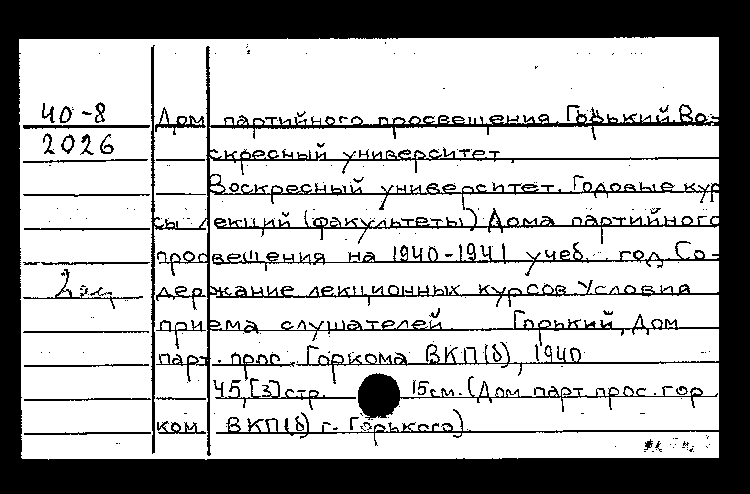 40-8
2026
2 экз
Дом партийного просвещения. Горький. Во-
скресный университет.
Воскресный университет. Годовые кур
сы лекций (факультеты) Дома партийного
просвещения на 1940-1941 учеб. год. Со-
держание лекционных курсов. Условия
приема слушателей. Горький, Дом
парт. прос. Горкома ВКП(б), 1940
45,[3]стр. 15см. (Дом парт. прос. гор
ком. ВКП(б) г. Горького).